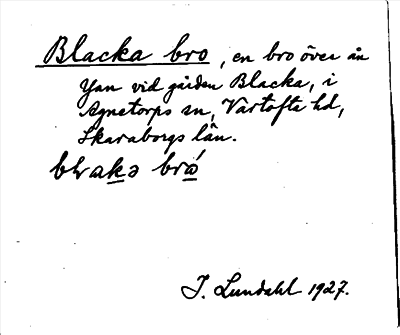 Blacka bro, en bro över ån
Yan vid gården Blacka, i
Agnetorps sn, Vartofta hd,
Skaraborgs län.
bro
J. Lundahl 1927.